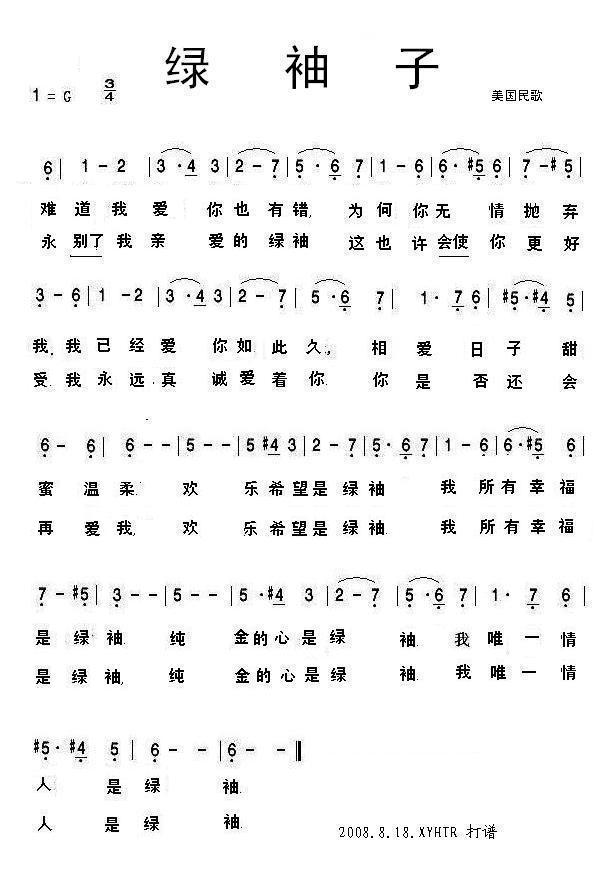 绿 袖 子
1 = G 3/4
美国民歌
6 | 1 - 2 | 3 · 4 3 | 2 - 7 | 5 · 6 7 | 1 - 6 | 6 · #5 6 | 7 - #5 |
难 道 我 爱 你 也 有 错, 为 何 你 无 情 抛 弃
永 别了 我 亲 爱 的 绿 袖 这 也 许 会使 你 更 好
3 - 6 | 1 - 2 | 3 · 4 3 | 2 - 7 | 5 · 6 7 | 1 · 7 6 | #5 · #4 5 |
我, 我 已 经 爱 你 如 此 久, 相 爱 日 子 甜
受. 我 永 远 真 诚 爱 着 你. 你 是 否 还 会
6 - 6 | 6 - - | 5 - - | 5 #4 3 | 2 - 7 | 5 · 6 7 | 1 - 6 | 6 · #5 6 |
蜜 温 柔. 欢 乐 希 望 是 绿 袖 我 所 有 幸 福
再 爱 我, 欢 乐 希 望 是 绿 袖. 我 所 有 幸 福
7 - #5 | 3 - - | 5 - - | 5 · #4 3 | 2 - 7 | 5 · 6 7 | 1 · 7 6 |
是 绿 袖. 纯 金 的 心 是 绿 袖. 我 唯 一 情
是 绿 袖, 纯 金 的 心 是 绿 袖. 我 唯 一 情
#5 · #4 5 | 6 - - | 6 - ‖
人 是 绿 袖.
人 是 绿 袖.
2008.8.18.XYHTR 打谱